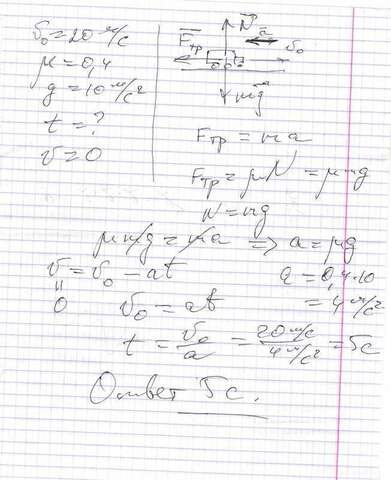 v₀ = 20 м/с
μ = 0,4
g = 10 м/с²
t = ?
v = 0
N a
Fтр v₀
mg
Fтр = ma
Fтр = μN = μmg
N = mg
μmg = ma => a = μg
v = v₀ - at a = 0,4·10
0 v₀ = at = 4 м/с²
t = v₀/a = 20 м/с / 4 м/с² = 5с
Ответ 5с.